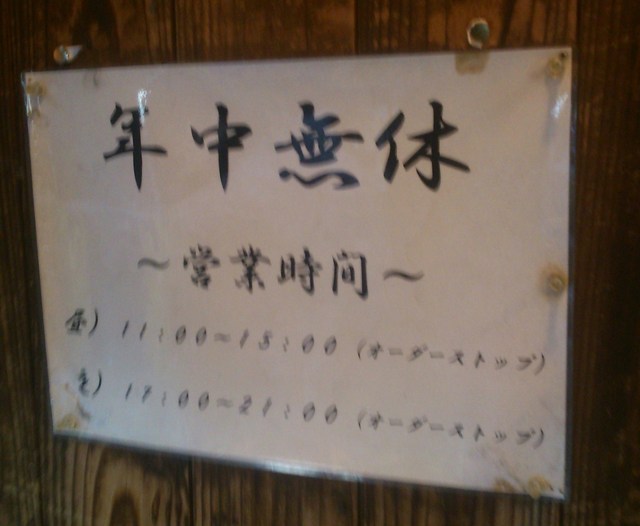 年中無休
～営業時間～
昼) 11:00～15:00 (オーダーストップ)
夜) 17:00～21:00 (オーダーストップ)